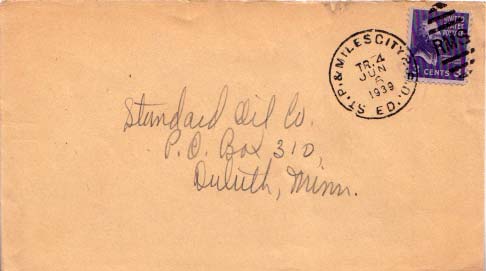 ST. P. & MILES CITY
TR. 4
JUN
6
1939
E.D.
UNITED
STATES
POSTAGE
RMS
CENTS 3
Standard Oil Co.
P.O. Box 310,
Duluth, Minn.